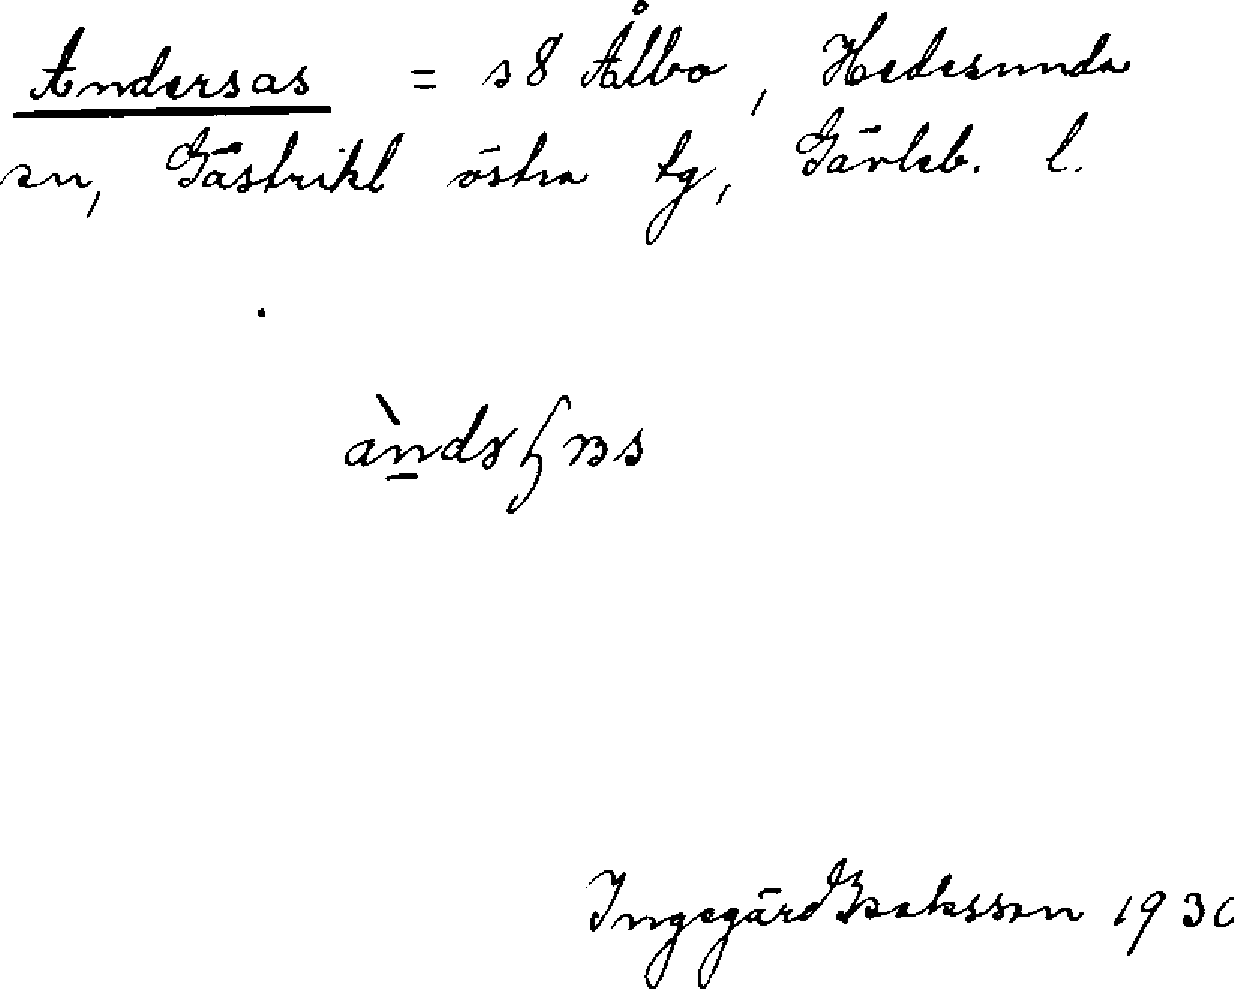 Andersas = s8 Ålbo, Hedesunda
sn, Gästrikl östra tg, Gävleb. l.
Ingegärd Isaksson 1930